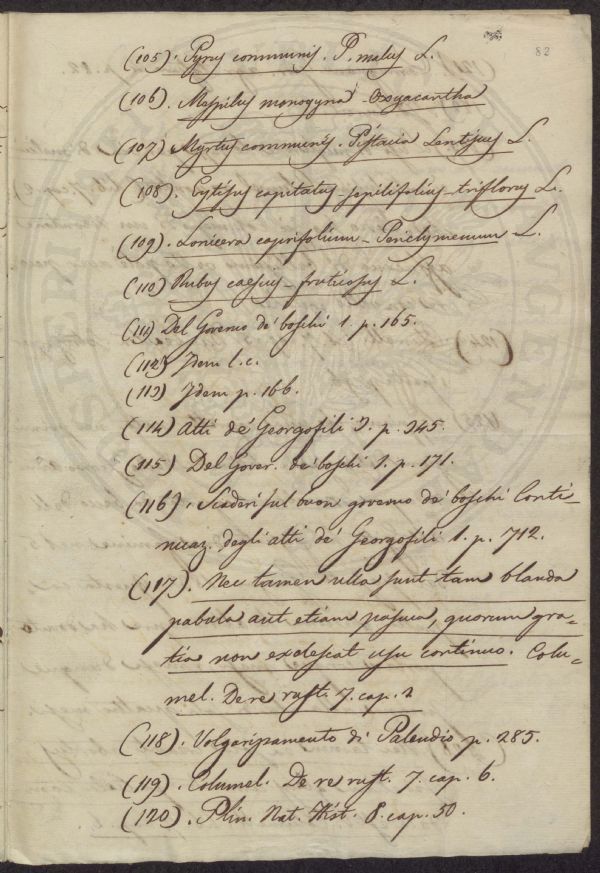 82
(105). Pyrus communis. P. malus L.
(106). Mespilus monogyna - Oxyacantha
(107) Myrtus communis. Pistacia Lentiscus L.
(108). Cytisus capitatus - sepilifolius - triflorus L.
(109). Lonicera caprifolium - Periclymenum - L.
(110) Rubus caesius - fruticosus L.
(111) Del Governo de' boschi 1. p. 165.
(112) Idem l. c.
(113) Idem p. 166.
(114) Atti de' Georgofili 3. p. 345.
(115) Del Gover. de' boschi 1. p. 171.
(116). sul buon governo de' boschi Conti=
nuaz. degli atti de' Georgofili 1. p. 712.
(117). Nec tamen ulla sunt tam blanda
pabula aut etiam pascua, quorum gra=
tia non exolescat usu continuo. Colu=
mel. De re rust. 7. cap. 2
(118). Volgarizzamento di Palladio p. 285.
(119). Columel. De re rust. 7. cap. 6.
(120). Plin. Nat. Hist. 8. cap. 50.